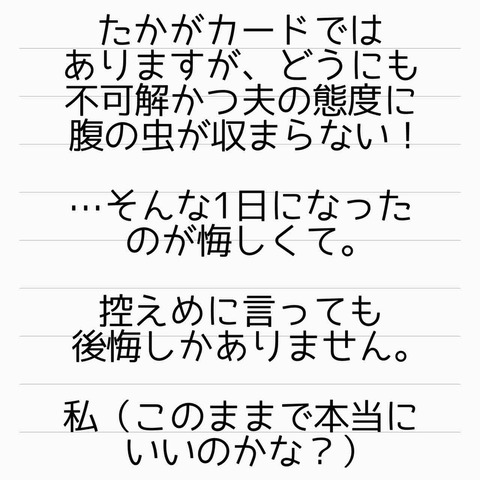 たかがカードでは
ありますが、どうにも
不可解かつ夫の態度に
腹の虫が収まらない！
…そんな1日になった
のが悔しくて。
控えめに言っても
後悔しかありません。
私（このままで本当に
いいのかな？）